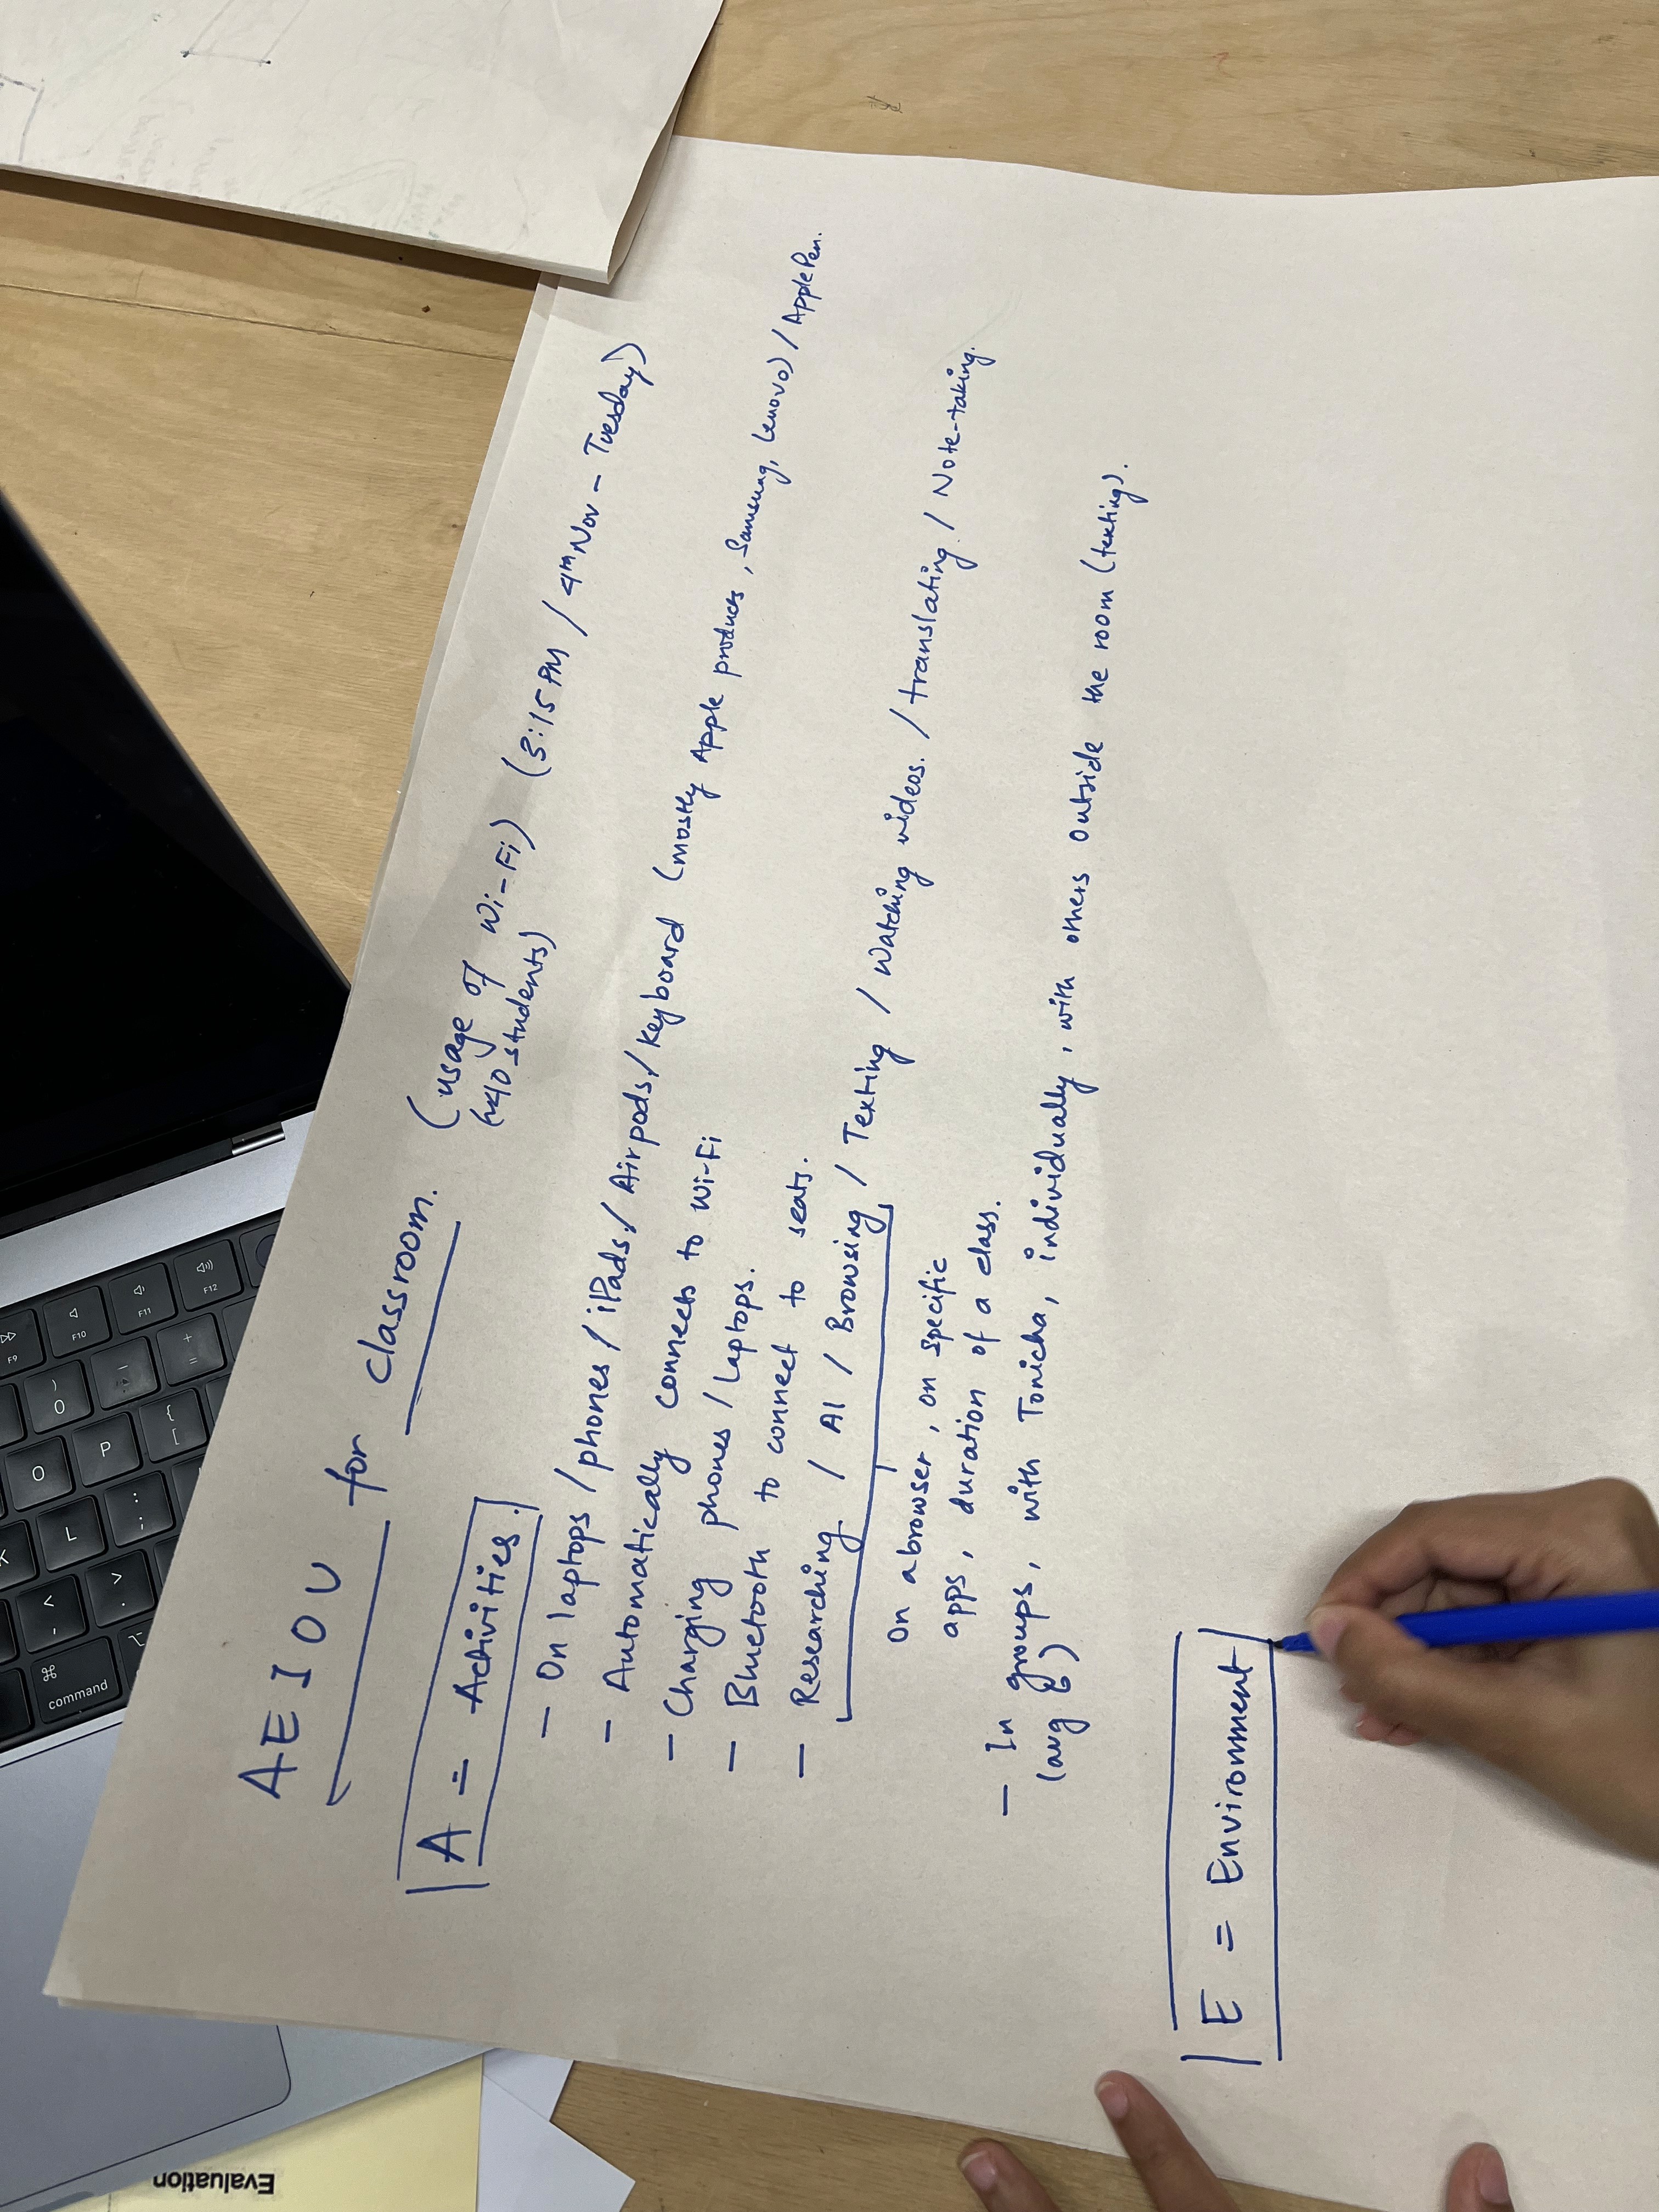 AEIOU for classroom. (usage of Wi-Fi) (3:15 PM / 4th Nov - Tuesday)
(~40 students)
A = Activities.
- On laptops / phones / iPads / Airpods / keyboard (mostly Apple products, Samsung, Lenovo) / Apple Pen.
- Automatically connects to Wi-Fi
- Charging phones / laptops.
- Bluetooth to connect to seats.
- Researching / AI / Browsing / Texting / watching videos. / translating / Note-taking.
On a browser, on specific
apps, duration of a class.
- In groups, with Tonicha, individually, with others outside the room (texting).
(avg 6)
E = Environment
Evaluation
command
F9
F10
F11
F12
O
P
L